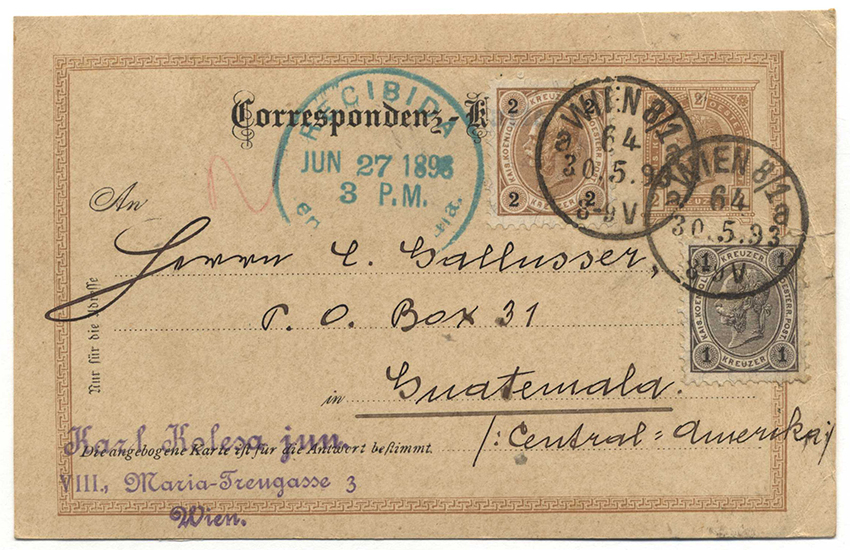 Correspondenz-K
RECIBIDA
JUN 27 1893
3 P.M.
en
la.
2 2
KREUZER
KAIS.KOENIGL. OESTERR.POST.
2 2
KREUZER
2
WIEN 8/1 a
64
30.5.93
8-9V
WIEN 8/1 a
64
30.5.93
8-9V
An
Herrn C. Gallusser,
P. O. Box 31
in Guatemala.
/: Central = Amerika :/
Nur für die Adresse
1 KREUZER 1
KAIS.KOENIGL. OESTERR.POST.
1 KREUZER 1
Karl Kolesa jun.
Die angebogene Karte ist für die Antwort bestimmt.
VIII., Maria-Treugasse 3
Wien.